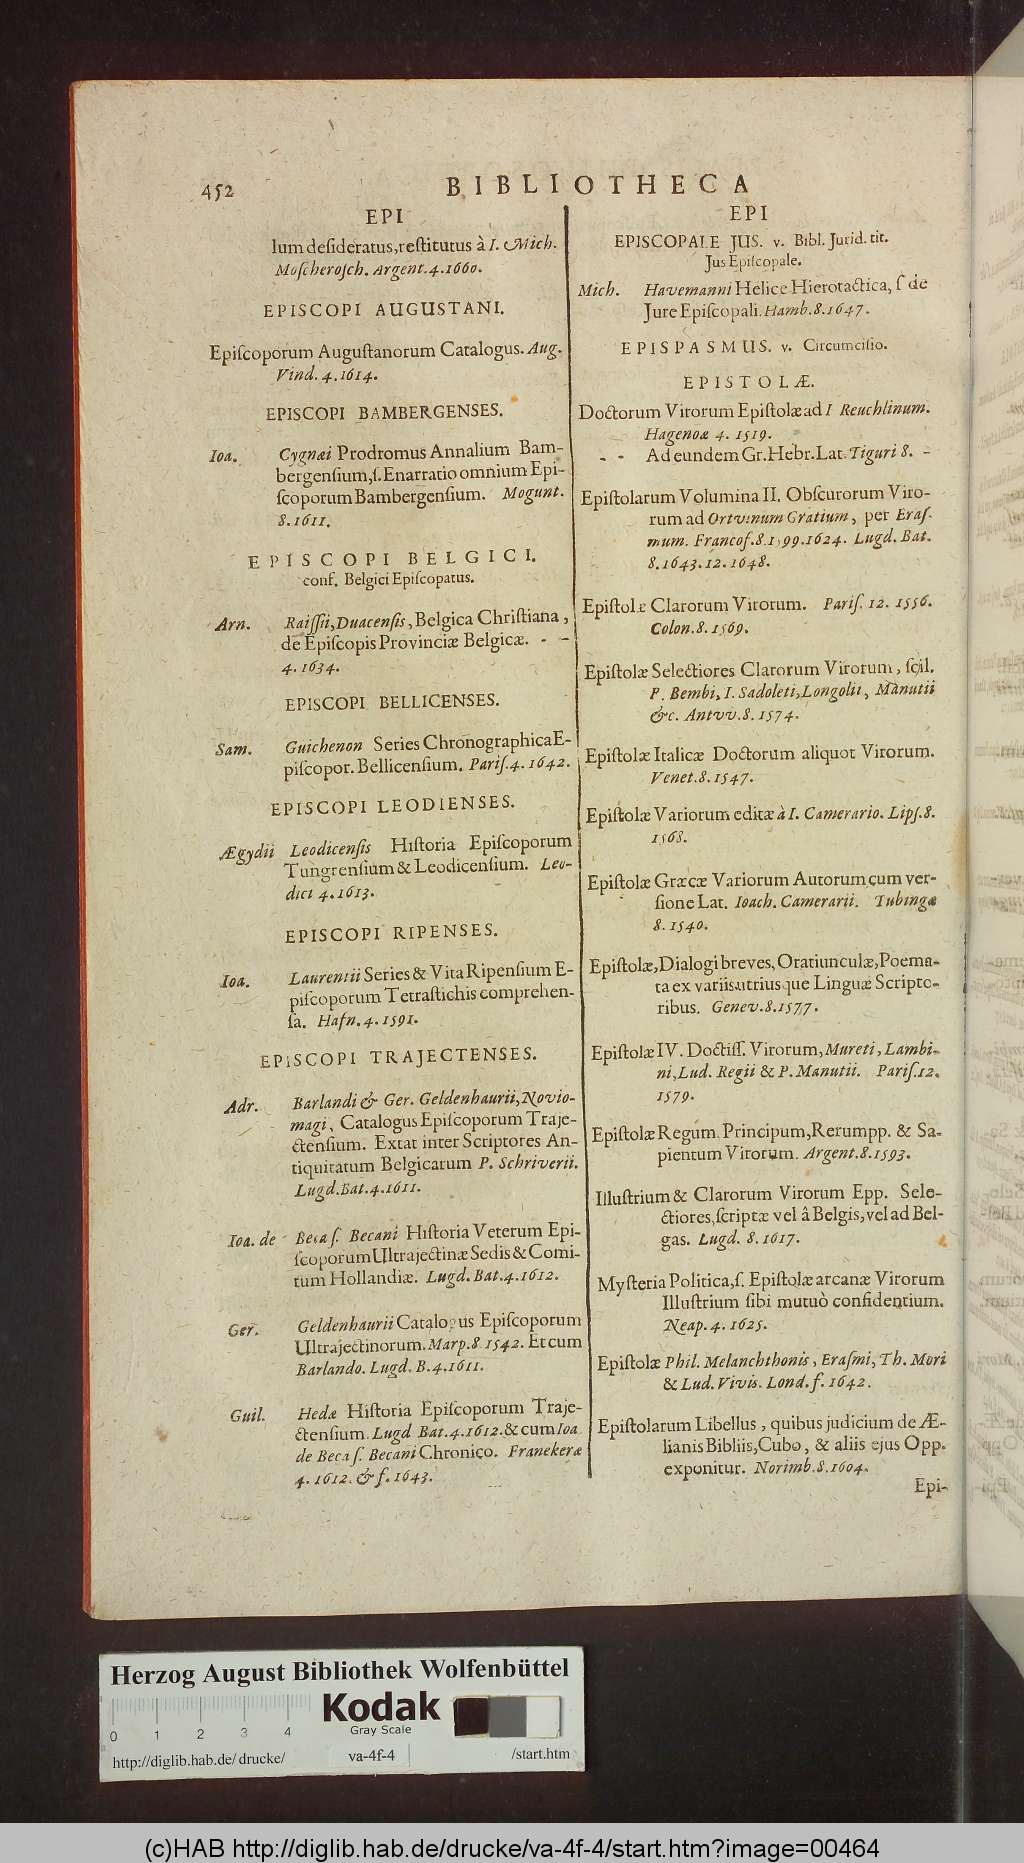 452
BIBLIOTHECA
EPI
lum desideratus, restitutus à I. Mich.
Moscherosch. Argent. 4. 1660.
EPISCOPI AUGUSTANI.
Episcoporum Augustanorum Catalogus. Aug.
Vind. 4. 1614.
EPISCOPI BAMBERGENSES.
Ioa. Cygnæi Prodromus Annalium Bam-
bergensium, s. Enarratio omnium Epi-
scoporum Bambergensium. Mogunt.
8. 1611.
EPISCOPI BELGICI.
conf. Belgici Episcopatus.
Arn. Raissii, Duacensis, Belgica Christiana,
de Episcopis Provinciæ Belgicæ. - -
4. 1634.
EPISCOPI BELLICENSES.
Sam. Guichenon Series Chronographica E-
piscopor. Bellicensium. Paris. 4. 1642.
EPISCOPI LEODIENSES.
Ægydii Leodicensis Historia Episcoporum
Tungrensium & Leodicensium. Leo-
dici 4. 1613.
EPISCOPI RIPENSES.
Ioa. Laurentii Series & Vita Ripensium E-
piscoporum Tetrastichis comprehen-
sa. Hafn. 4. 1591.
EPISCOPI TRAJECTENSES.
Adr. Barlandi & Ger. Geldenhaurii, Novio-
magi, Catalogus Episcoporum Traje-
ctensium. Extat inter Scriptores An-
tiquitatum Belgicarum P. Schriverii.
Lugd. Bat. 4. 1611.
Ioa. de Beca s. Becani Historia Veterum Epi-
scoporum Ultrajectinæ Sedis & Comi-
tum Hollandiæ. Lugd. Bat. 4. 1612.
Ger. Geldenhaurii Catalogus Episcoporum
Ultrajectinorum. Marp. 8. 1542. Et cum
Barlando. Lugd. B. 4. 1611.
Guil. Hedæ Historia Episcoporum Traje-
ctensium. Lugd Bat. 4. 1612. & cum Ioa
de Beca s. Becani Chronico. Franekeræ
4. 1612. & f. 1643.
EPI
EPISCOPALE JUS. v. Bibl. Jurid. tit.
Jus Episcopale.
Mich. Havemanni Helice Hierotactica, s de
Jure Episcopali. Hamb. 8. 1647.
EPISPASMUS. v. Circumcisio.
EPISTOLÆ.
Doctorum Virorum Epistolæ ad I Reuchlinum.
Hagenoæ 4. 1519.
- - Ad eundem Gr. Hebr. Lat. Tiguri 8. -
Epistolarum Volumina II. Obscurorum Viro-
rum ad Ortvinum Gratium, per Eras-
mum. Francof. 8. 1599. 1624. Lugd. Bat.
8. 1643. 12. 1648.
Epistolæ Clarorum Virorum. Paris. 12. 1556.
Colon. 8. 1569.
Epistolæ Selectiores Clarorum Virorum, scil.
P. Bembi, I. Sadoleti, Longolii, Manutii
&c. Antvv. 8. 1574.
Epistolæ Italicæ Doctorum aliquot Virorum.
Venet. 8. 1547.
Epistolæ Variorum editæ à I. Camerario. Lips. 8.
1568.
Epistolæ Græcæ Variorum Autorum cum ver-
sione Lat. Ioach. Camerarii. Tubingæ
8. 1540.
Epistolæ, Dialogi breves, Oratiunculæ, Poema-
ta ex variis utriusque Linguæ Scripto-
ribus. Genev. 8. 1577.
Epistolæ IV. Doctiss. Virorum, Mureti, Lambi-
ni, Lud. Regii & P. Manutii. Paris. 12.
1579.
Epistolæ Regum, Principum, Rerumpp. & Sa-
pientum Virorum. Argent. 8. 1593.
Illustrium & Clarorum Virorum Epp. Sele-
ctiores, scriptæ vel â Belgis, vel ad Bel-
gas. Lugd. 8. 1617.
Mysteria Politica, s. Epistolæ arcanæ Virorum
Illustrium sibi mutuò confidentium.
Neap. 4. 1625.
Epistolæ Phil. Melanchthonis, Erasmi, Th. Mori
& Lud. Vivis. Lond. f. 1642.
Epistolarum Libellus, quibus judicium de Æ-
lianis Bibliis, Cubo, & aliis ejus Opp.
exponitur. Norimb. 8. 1604.
Epi-
Herzog August Bibliothek Wolfenbüttel
Kodak
Gray Scale
0 1 2 3 4
http://diglib.hab.de/drucke/ va-4f-4 /start.htm
(c)HAB http://diglib.hab.de/drucke/va-4f-4/start.htm?image=00464